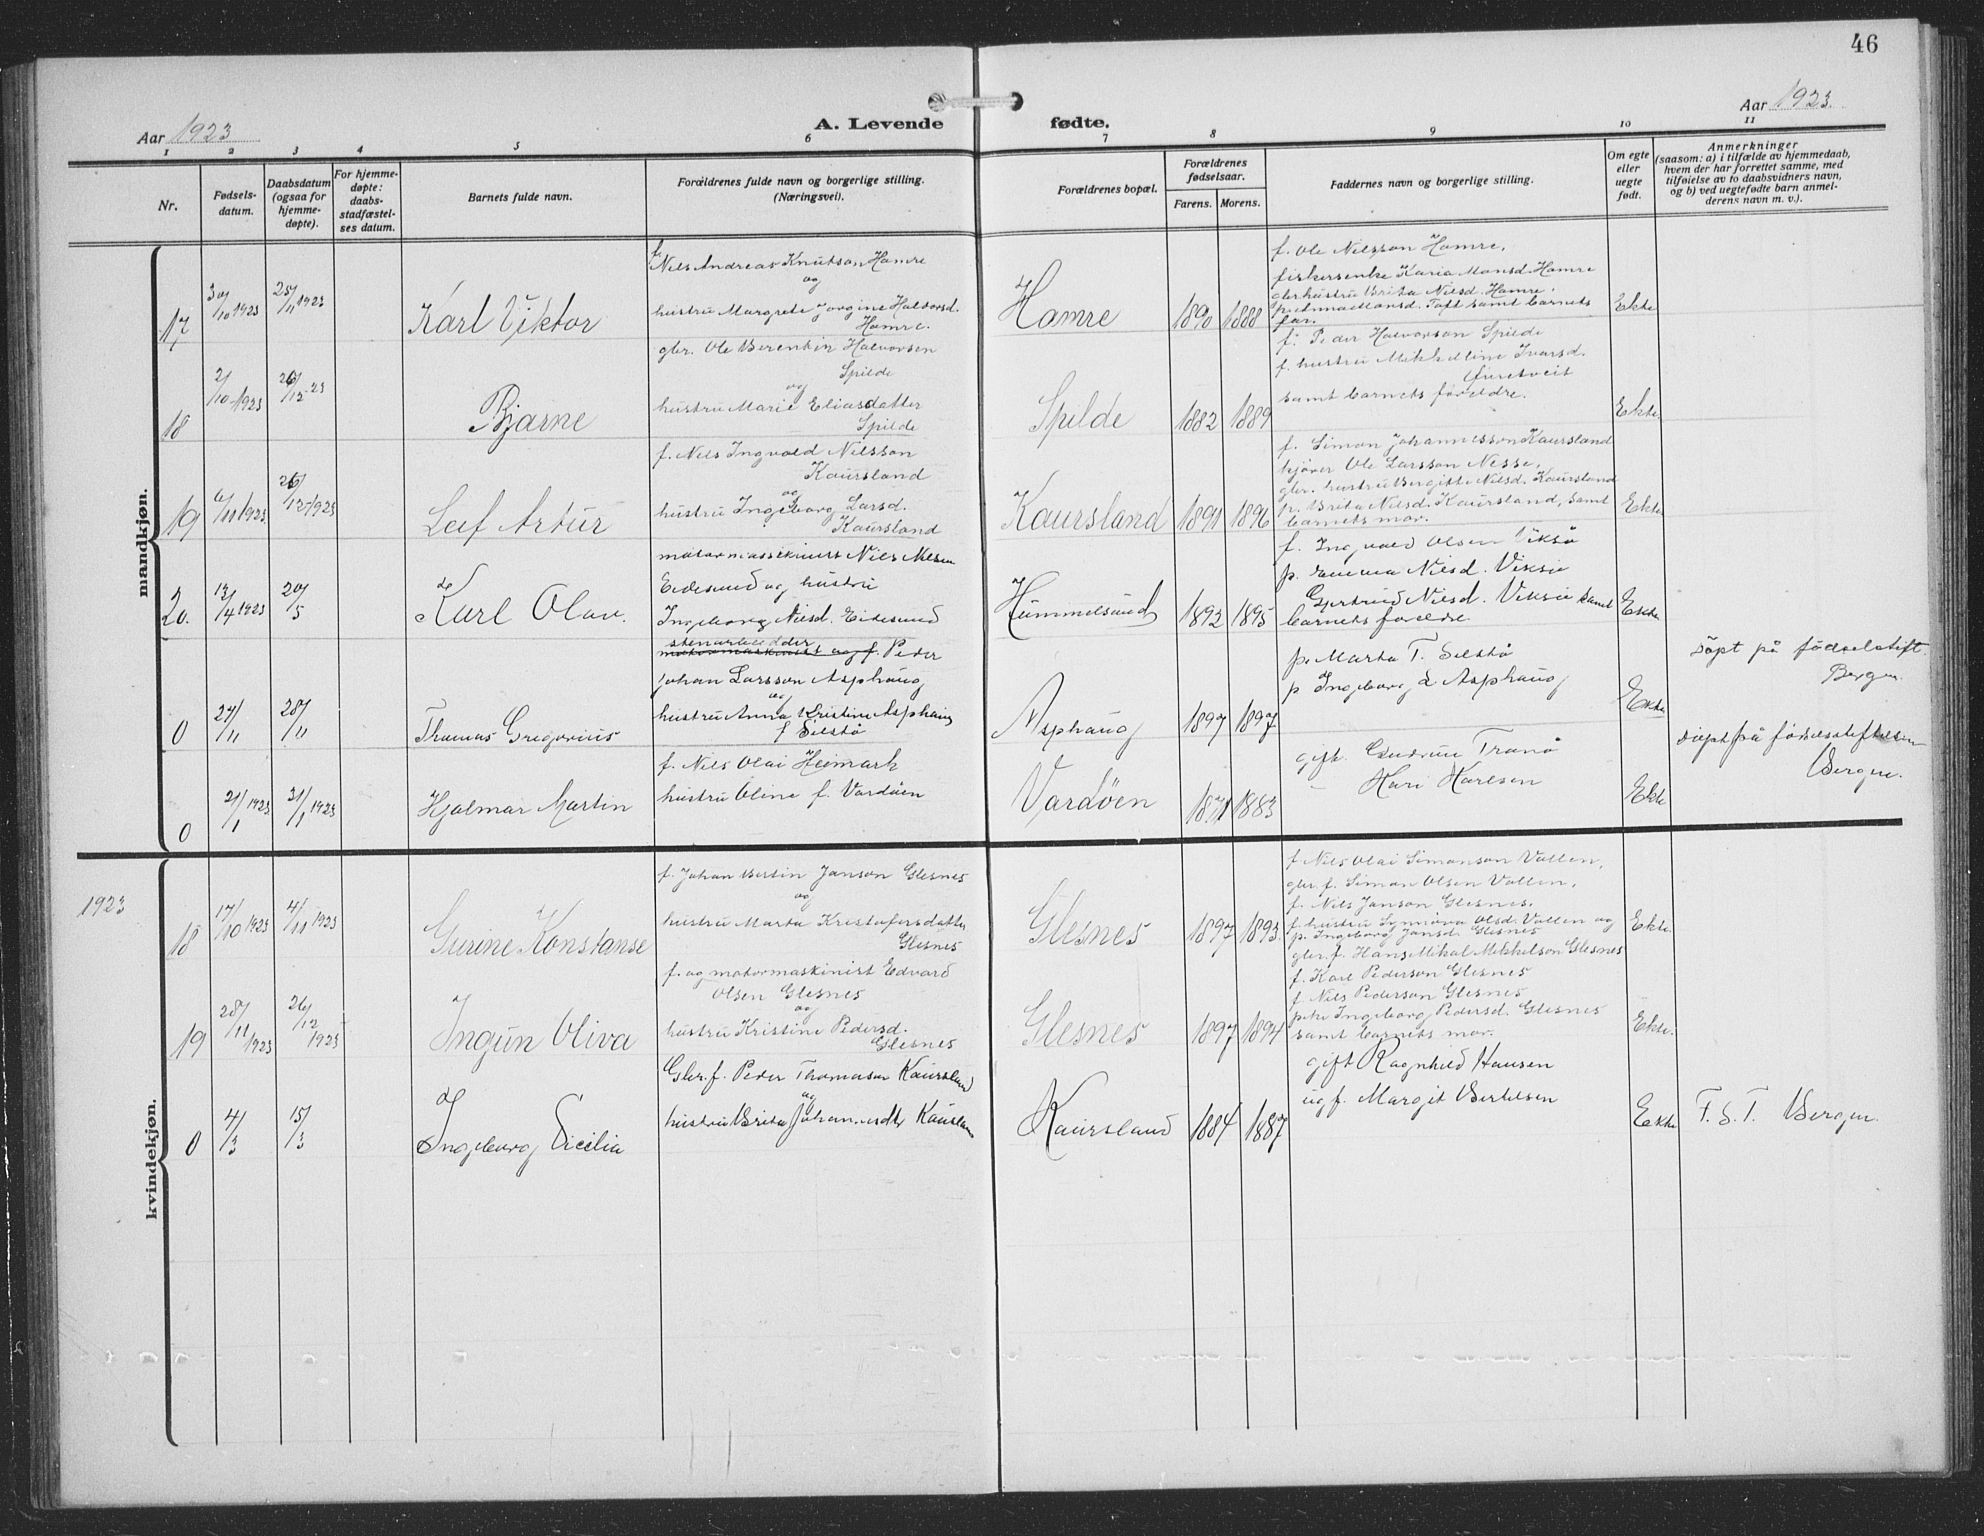 46
Aar 1923
A. Levende fødte.
Aar 1923.
1 2 3 4 5 6 7 8 9 10 11
Nr.
Fødsels-
datum.
Daabsdatum
(ogsaa for
hjemme-
døpte).
For hjemme-
døpte:
daabs-
stadfæstel-
ses datum.
Barnets fulde navn.
Forældrenes fulde navn og borgerlige stilling.
(Næringsvei).
Forældrenes bopæl.
Forældrenes
fødselsaar.
Farens. Morens.
Faddernes navn og borgerlige stilling.
Om egte
eller
uegte
født.
Anmerkninger
(saasom: a) i tilfælde av hjemmedaab,
hvem der har forrettet samme, med
tilføielse av to daabsvidners navn,
og b) ved uegtefødte barn anmel-
derens navn m. v.).
mandkjøn.
17
30/10 1923
25/11 1923
Karl Viktor
f. Nils Andreas Knutson Hamre
og
hustru Margrete Jorgine Halvorsd.
Hamre.
Hamre
1890 1888
f. Ole Nilsson Hamre,
fiskerenke Karia Monsd. Hamre
gbr. hustru Brita Nilsd. Hamre,
Toft samt barnets
far.
Ekte
18
2/10 1923
26/12 23
Bjarne
gbr. Ole Berentin Halvorsen
Spilde
og
hustru Marie Eliasdatter
Spilde
Spilde
1882 1889
f. Peder Halvorson Spilde
f. hustru Mikkeline Ivarsd.
samt barnets foreldre.
Ekte
19
6/11 1923
26/12 1923
Leif Artur
f. Nils Ingvald Nilsson
Kaursland
og
hustru Ingeborg Larsd.
Kaursland
Kaursland
1891 1896
f. Simon Johannesson Kaursland
kjører Ole Larsson Nesse,
gbr. hustru Bergitte Nilsd. Kaursland
p. Brita Nilsd. Kaursland, samt
barnets mor.
Ekte
20.
13/4 1923
20/5
Karl Olav.
motormaskinist Nils Nilsen
Eidesund og hustru
Ingeborg Nilsd. Eidesund
Hummelsund
1892 1895
f. Ingvald Olsen Viksø
p. Emma Nilsd. Viksø
Gjertrud Nilsd. Viksø samt
barnets foreldre
Ekte
0
27/11
28/11
Thomas Gregorius
stenarbeider
motormaskinist og f. Peder
Johan Larsson Asphaug
og
hustru Anna Kristine Asphaug
f Selstø
Asphaug
1897 1897
p. Marta T. Selstø
p Ingeborg L Asphaug
Ekte
döpt på födselstift.
Bergen
0
21/1 1923
31/1 1923
Hjalmar Martin
f. Nils Olai Heimark
hustru Oline f. Vardøen
Vardøen
1871 1883
gift. Gudrun Tranø
" Kari Karlsen
Ekte
döpt på födselsstiftelsen
Bergen.
kvindekjøn.
1923
18
17/10 1923
4/11 1923
Gurine Konstanse
f. Johan Bertin Janson Glesnes
og
hustru Marta Kristofersdatter
Glesnes
Glesnes
1897 1893.
f. Nils Olai Simonson Vallen,
gbr. f. Simon Olsen Vallen,
f. Nils Janson Glesnes.
f. hustru Synnøva Olsd. Vallen og
p. Ingeborg Jansd. Glesnes
Ekte.
19
28/11 1923
26/12 1923
Ingun Oliva
f. og motormaskinist Edvard
Olsen Glesnes
og
hustru Kristine Pedersd.
Glesnes
Glesnes
1897 1894
gbr. f. Hans Mikal Mikkelson Glesnes
f. Karl Pederson Glesnes
f. Nils Pederson Glesnes
pike Ingeborg Pedersd. Glesnes
samt barnets mor.
Ekte.
0
4/3
15/3
Ingeborg Sicilia
Gbr. f. Peder Thomasen Kaursland
og
hustru Brita Johannesdtr Kausland
Kaursland
1884 1887
gift Ragnhild Hansen
ug f. Margit Bertelsen
Ekte
F. S. T. Bergen.